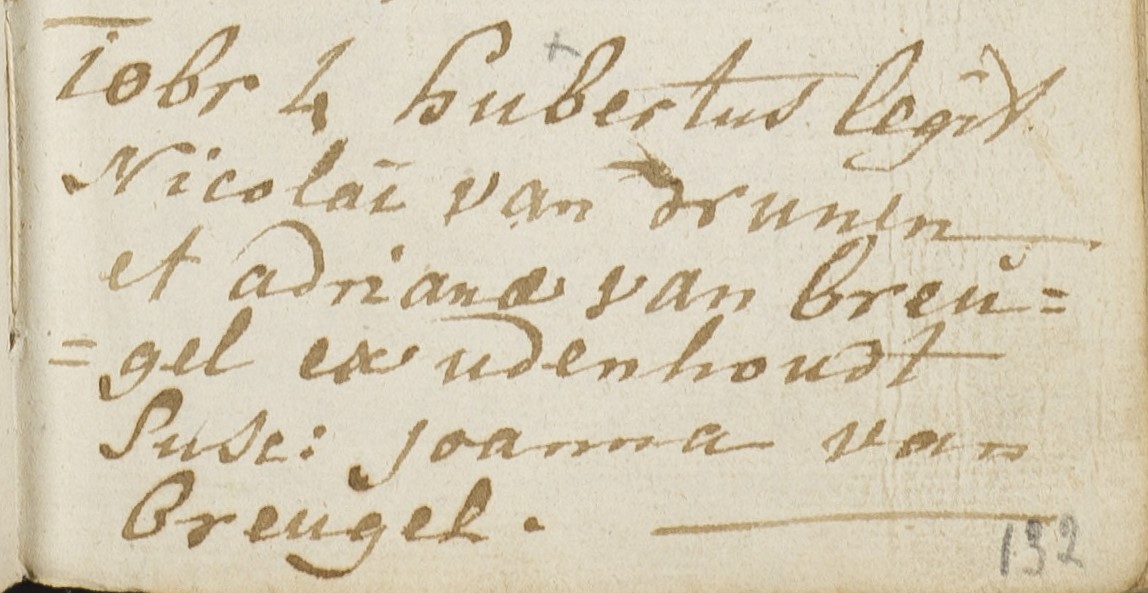 10br 4 hubertus legit
Nicolai van drunen
et adrianæ van breu=
=gel ex udenhoudt
Susc: joanna van
breugel.
132